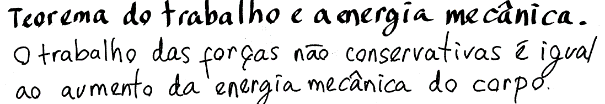 Teorema do trabalho e a energia mecânica.
O trabalho das forças não conservativas é igual
ao aumento da energia mecânica do corpo.